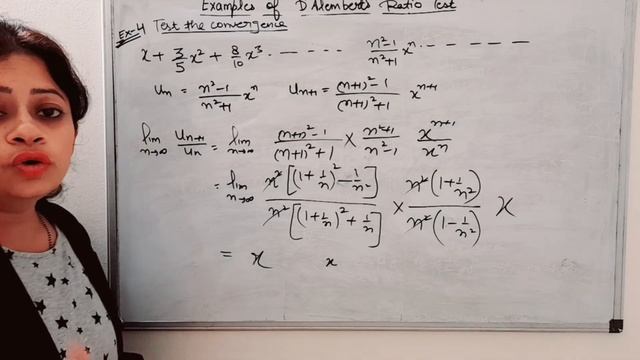 Examples of D'Alembert's Ratio Test
Ex-4 Test the convergence
x + 3/5 x² + 8/10 x³ - - - - - (n²-1)/(n²+1) xⁿ - - - - - -
Uₙ = (n²-1)/(n²+1) xⁿ Uₙ₊₁ = ((n+1)²-1)/((n+1)²+1) xⁿ⁺¹
lim n→∞ Uₙ₊₁/Uₙ = lim n→∞ ((n+1)²-1)/((n+1)²+1) × (n²+1)/(n²-1) xⁿ⁺¹/xⁿ
= lim n→∞ n²[(1+1/n)²-1/n²]/n²[(1+1/n)²+1/n] × n²(1+1/n²)/n²(1-1/n²) x
= x x